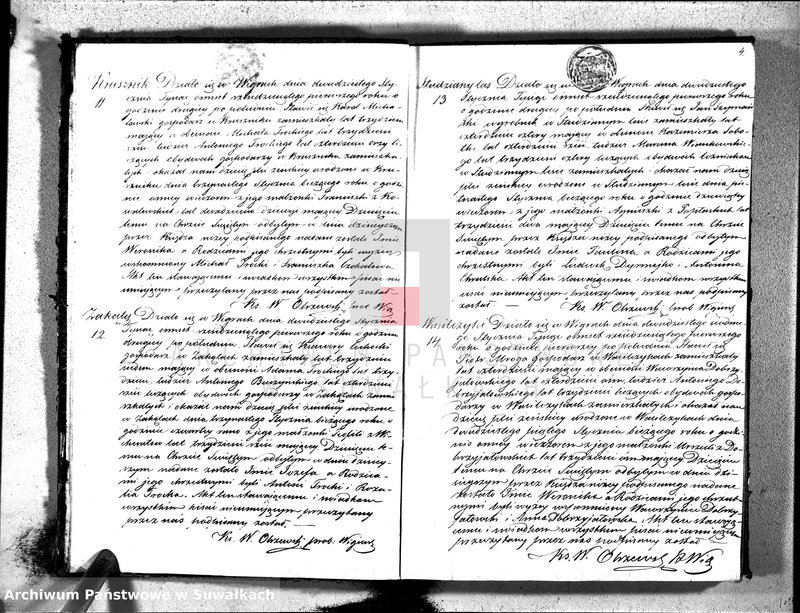 Krusznik Działo się w Wigrach dnia dwudziestego Sty-
11 cznia Tysiąc ośmset siedmdziesiątego pierwszego roku o
godzinie drugiej po południu. Stawił się Karol Micha-
łowski gospodarz w Kruszniku zamieszkały lat trzydzieści
mający w obecności Michała Trockiego lat trzydzieści
sześć tudzież Antoniego Trockiego lat czterdzieści trzy li-
czących obydwóch gospodarzy w Kruszniku zamieszka-
łych i okazał nam dziecię płci żeńskiej urodzone w Krusz-
niku dnia trzynastego Stycznia bieżącego roku o godzi-
nie wieczorem z jego małżonki Franciszki z Ko-
lat dwadzieścia mającej Dziecięciu
temu na Chrzcie Świętym odbytym w dniu dzisiejszym
przez Księdza niżej podpisanego nadane zostało Imie
Weronika a Rodzicami jego chrzestnymi byli wyżej
wspomniony Michał Trocki i Franciszka
Akt ten stawającemu i świadkom wszystkim pisać nie
umiejącym przeczytany przez nas podpisany został
Ks. W. Obrzewski prob. Wig.
Zakąty Działo się w Wigrach dnia dwudziestego Stycznia
12 Tysiąc ośmset siedmdziesiątego pierwszego roku o godzinie
drugiej po południu. Stawił się Xawery
gospodarz w Zakątach zamieszkały lat trzydzieści
mający w obecności Adama Trockiego lat trzy-
dzieści, tudzież Antoniego Buczyńskiego lat czterdzieści
sześć liczących obydwóch gospodarzy w Zakątach zamie-
szkałych i okazał nam dziecię płci żeńskiej urodzone
w Zakątach dnia trzynastego Stycznia bieżącego roku o
godzinie czwartej rano z jego małżonki Teofili z
lat trzydzieści sześć mającej Dziecięciu te-
mu na Chrzcie Świętym odbytym w dniu dzisiej-
szym nadane zostało Imie Józefa a Rodzica-
mi jego chrzestnymi byli Antoni Trocki i Roza-
lia Trocka. Akt ten stawającemu i świadkom
wszystkim pisać nieumiejącym przeczytany
przez nas podpisany został.
Ks. W. Obrzewski prob. Wigierski
4
Studziany las Działo się w Wigrach dnia dwudziestego
13 Stycznia Tysiąc ośmset siedmdziesiątego pierwszego roku
o godzinie drugiej po południu Stawił się Jan Szymań-
ski wyrobnik w Studzianym lesie zamieszkały lat
czterdzieści cztery mający w obecności Kazimierza Sobo-
lat czterdzieści sześć tudzież Marcina
lat trzydzieści cztery liczących obydwóch
w Studzianym lesie zamieszkałych i okazał nam dziecię
płci żeńskiej urodzone w Studzianym lesie dnia pię-
tnastego Stycznia bieżącego roku o godzinie dziewiątej
wieczorem z jego małżonki Agnieszki z lat
trzydzieści dwa mającej Dziecięciu temu na Chrzcie
Świętym przez Księdza niżej podpisanego odbytym
nadane zostało Imie Paulina a Rodzicami jego
chrzestnymi byli Ludwik i Antonina
Akt ten stawającemu i świadkom wszystkim
pisać nieumiejącym, przeczytany przez nas podpisany
został — Ks. W. Obrzewski prob. Wigierski
Wasilczyki Działo się w Wigrach dnia dwudziestego siódme-
14 go Stycznia Tysiąc ośmset siedmdziesiątego pierwszego
roku o godzinie pierwszej po południu Stawił się
Piotr Mroza Gospodarz w Wasilczykach zamieszkały
lat czterdzieści mający w obecności Wawrzyńca Dobrzy-
jałowskiego lat czterdzieści ośm, tudzież Antoniego Do-
brzyjałowskiego lat trzydzieści liczących obydwóch gospo-
darzy w Wasilczykach zamieszkałych i okazał nam
dziecię płci żeńskiej urodzone w Wasilczykach dnia
dwudziestego piątego Stycznia bieżącego roku o godzi-
nie wieczorem z jego małżonki Urszuli z Do-
brzyjałowskich lat trzydzieści ośm mającej Dziecięciu
temu na Chrzcie Świętym odbytym w dniu dzi-
siejszym przez Księdza niżej podpisanego nadane
zostało Imie Weronika a Rodzicami jego chrzest-
nymi byli wyżej wspomniony Wawrzyniec Dobrzy-
jałowski i Anna Dobrzyjałowska. Akt ten stawają-
cemu i świadkom wszystkim pisać nieumiejącym
przeczytany przez nas podpisany został
Ks. W. Obrzewski P. Wig
Archiwum Państwowe w Suwałkach